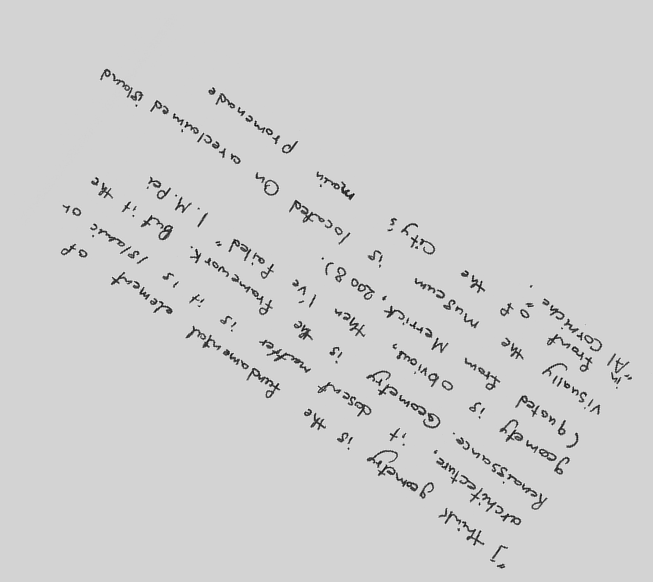 "I think geometry is the fundamental element of
architecture, it dosent matter is it is Islamic or
Renaissance. Geometry is the framework. But it the
geometry is obvious, then I've failed" I. M. Pei
(quoted from Merrick, 2008).
Visually the museum is located On a reclaimed island
in front of the City's main promenade
"Al Corniche".